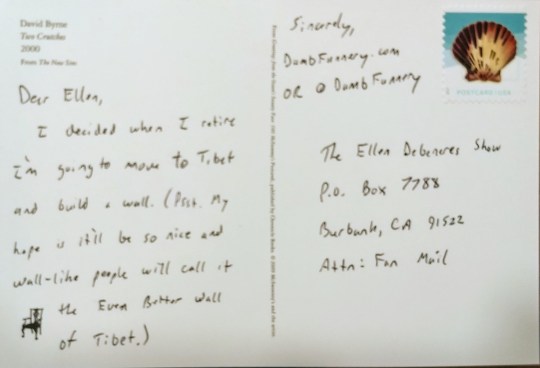 David Byrne
Two Crutches
2000
From The New Sins
Dear Ellen,
I decided when I retire
I'm going to move to Tibet
and build a wall. (Psst. My
hope is it'll be so nice and
wall-like people will call it
the Even Better Wall
of Tibet.)
Sincerely,
DumbFunnery.com
OR @DumbFunnery
POSTCARD USA
The Ellen Degeneres Show
P.O. Box 7788
Burbank, CA 91522
Attn: Fan Mail